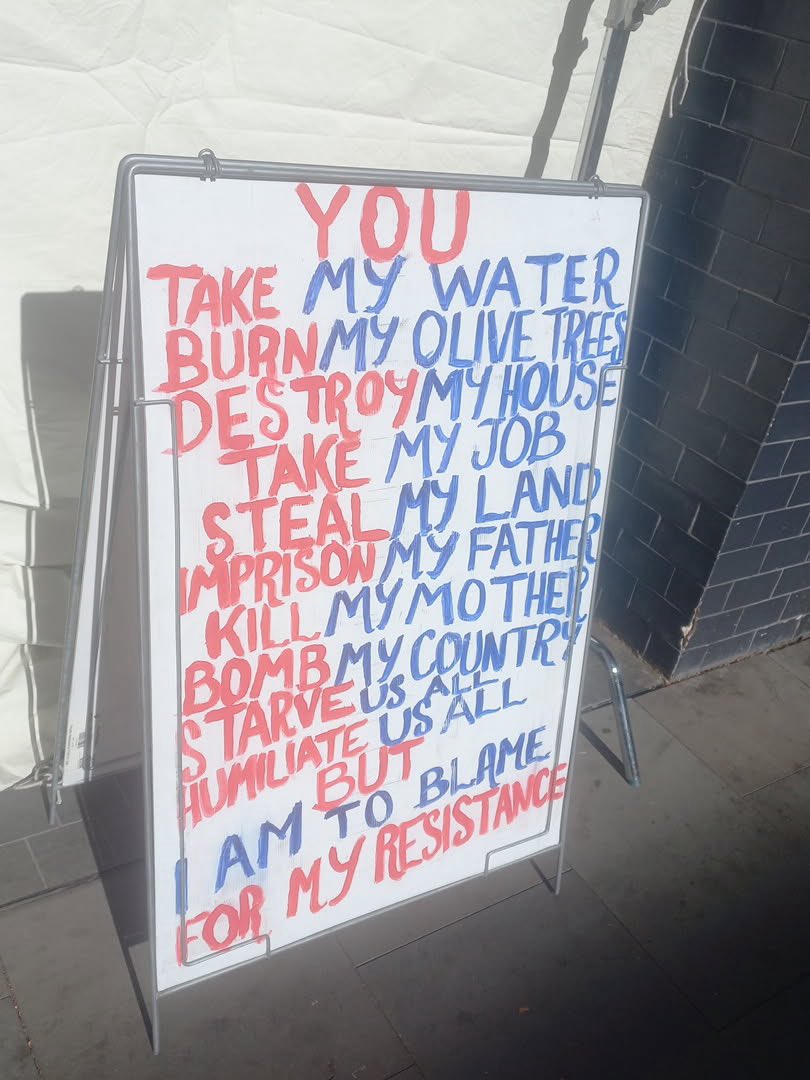 YOU
TAKE MY WATER
BURN MY OLIVE TREES
DESTROY MY HOUSE
TAKE MY JOB
STEAL MY LAND
IMPRISON MY FATHER
KILL MY MOTHER
BOMB MY COUNTRY
STARVE US ALL
HUMILIATE US ALL
BUT
I AM TO BLAME
FOR MY RESISTANCE